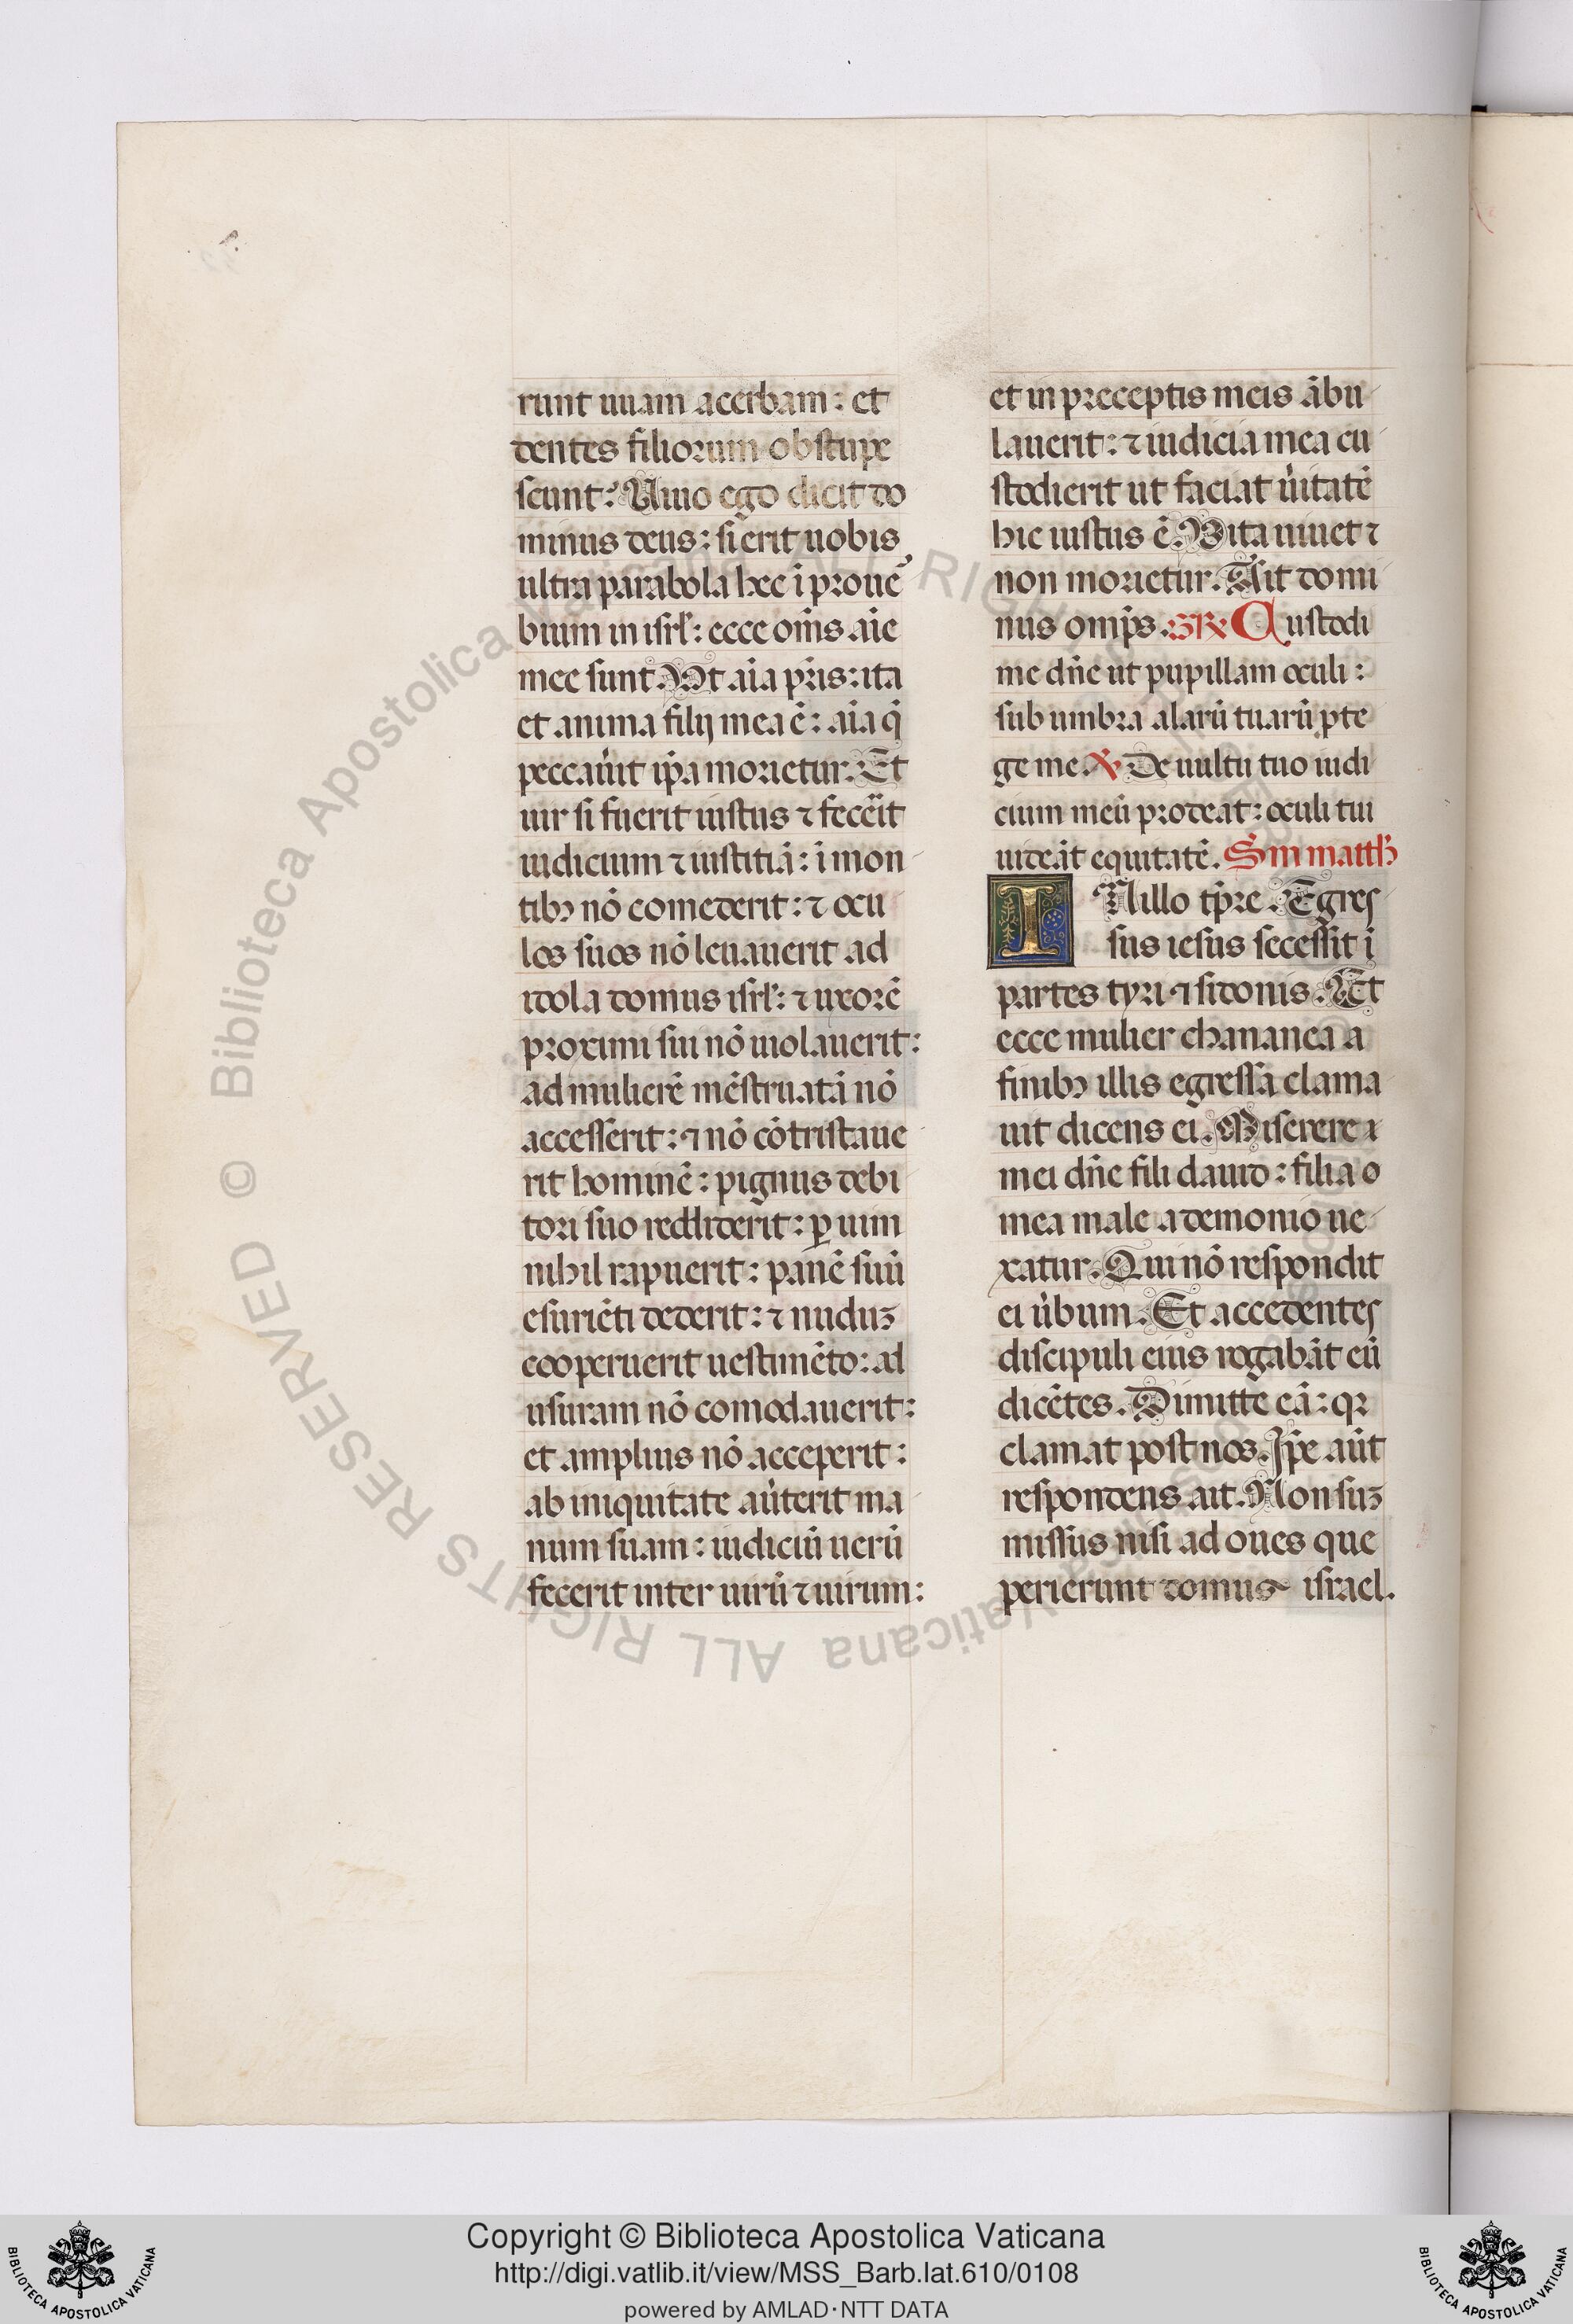 runt uuam acerbam : et
dentes filiorum obstupe
scunt? Uiuo ego dicit do
minus deus : si erit uobis
ultra parabola hec ī prouer̄
bium in isrł : ecce om̄s aīe
mee sunt. Ut aīa pr̄is : ita
et anima filij mea ē : aīa q̄
peccau̇it ip̄a morietur. Et
uir si fuerit iustus ⁊ fecėit
iudicium ⁊ iustitiā : ī mon
tibꝫ nō comederit : ⁊ ocu
los suos nō leuauerit ad
idola domus isrł : ⁊ uxorē
proximi sui nō uiolauerit :
ad mulierē mēstruatā nō
accesserit : ⁊ nō cōtristaue
rit hominē : pignus debi
tori suo reddiderit : ꝑ uim
nihil rapuerit : panē suū
esuriēti dederit : ⁊ nuduꝫ
cooperuerit uestimēto : ad
usuram nō comodauerit :
et amplius nō acceperit :
ab iniquitate au̇terit ma
num suam : iudiciū uerū
fecerit inter uirū ⁊ uirum :
et in preceptis meis ābu
lauerit : ⁊ iudicia mea cu
stodierit ut faciat u̇itatē
hic iustus ē. Uita uiuet ⁊
non morietur. Ait domi
nus omp̄s. GR Custodi
me dn̄e ut pupillam oculi :
sub umbra alarū tuarū ꝓte
ge me. ℣ De uultu tuo iudi
cium meū prodeat : oculi tui
uideāt equitatē. Sm matth
IN illo tp̄re. Egres
sus iesus secessit ī
partes tyri ⁊ sidonis. Et
ecce mulier chananea a
finibꝫ illis egressa clama
uit dicens ei. Miserere
mei dn̄e fili dauid : filia
mea male a demonio ue
xatur. Qui nō respondit
ei u̇bum. Et accedentes
discipuli eius rogabāt eū
dicētes. Dimitte eā : qꝛ
clamat post nos. Ip̄e aūt
respondens ait. Non suꝫ
missus nisi ad oues que
perierunt domus israel.
© Biblioteca Apostolica Vaticana ALL RIGHTS RESERVED
Copyright © Biblioteca Apostolica Vaticana
http://digi.vatlib.it/view/MSS_Barb.lat.610/0108
powered by AMLAD·NTT DATA
BIBLIOTECA APOSTOLICA VATICANA
BIBLIOTECA APOSTOLICA VATICANA